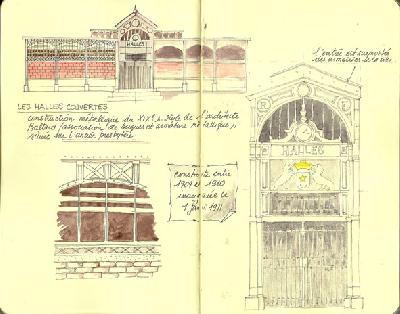 HALLES
l'entrée est surmontée
des armoiries de la ville
LES HALLES COUVERTES
construction métallique du XIXe s. Style de l'architecte
Baltard (association de briques et armature métallique),
situé sur l'ancien presbytère
HALLES
Construite entre
1909 et 1910
inaugurée le
1 Janv 1911